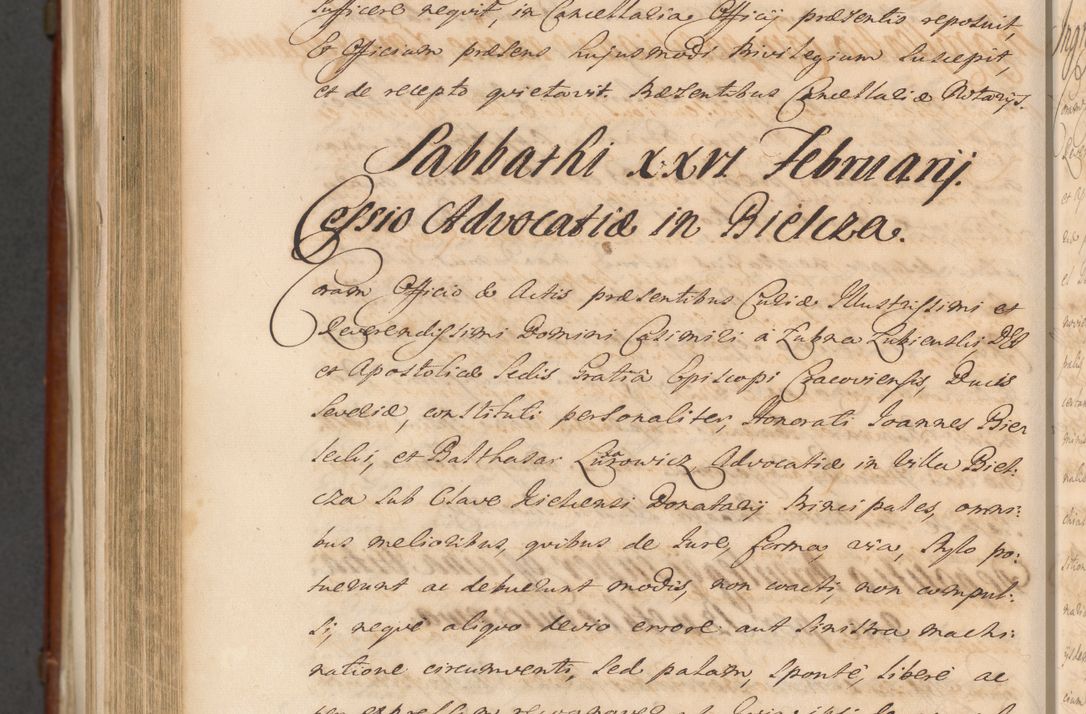 sufficere nequit, in Cancellaria Officij præsentis reposuit,
& Officium præsens hujusmodi Privilegium suscepit,
et de recepto quietavit. Præsentibus Cancellariæ Notarijs.
Sabbathi XXVI Februarij.
Cessio Advocatiæ in Bielcza.
Coram Officio & Actis præsentibus Curiæ Illustrissimi et
Reverendissimi Domini Casimiri à Łubna Łubienski, DEI
et Apostolicæ Sedis Gratiâ Episcopi Cracoviensis, Ducis
Severiæ, constituti personaliter, Honorati Joannes Bier
secki, et Balthasar Advocatiæ in Villa Biel:
cza sub Clave Kielcensi Donatarij Principales, omni:
bus melioribus, quibus de Jure, forma, via, stylo po:
tuerunt ac debuerunt modis, non coacti, non compul:
si, neque aliquo devio errore aut sinistra machi:
natione circumventi, sed palam, sponte, libere ac